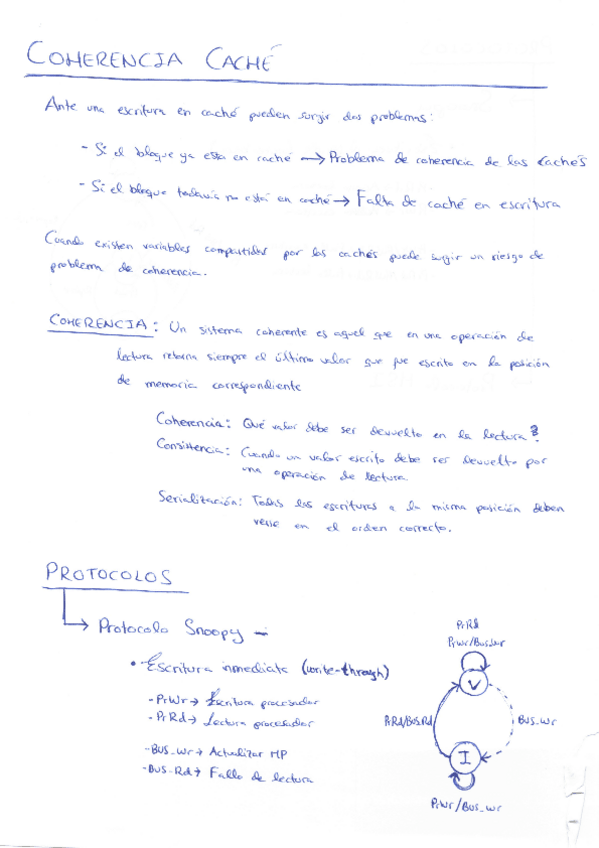 COHERENCIA CACHÉ
Ante una escritura en caché pueden surgir dos problemas:
- Si el bloque ya esta en caché → Problema de coherencia de las cachés
- Si el bloque todavía no está en caché → Falta de caché en escritura
Cuando existen variables compartidas por las cachés puede surgir un riesgo de
problema de coherencia.
COHERENCIA: Un sistema coherente es aquel que en una operación de
lectura retorna siempre el último valor que fue escrito en la posición
de memoria correspondiente
Coherencia: Qué valor debe ser devuelto en la lectura?
Consistencia: Cuando un valor escrito debe ser devuelto por
una operación de lectura.
Serialización: Todas las escrituras a la misma posición deben
verse en el orden correcto.
PROTOCOLOS
→ Protocolo Snoopy -
• Escritura inmediata (write-through)
- PrWr → Escritura procesador
- PrRd → Lectura procesador
- BUS_Wr → Actualizar MP
- BUS-Rd → Fallo de lectura
PrRd
PrWr/Bus_wr
V
PrRd/BUS_Rd
BUS_Wr
I
PrWr/BUS_Wr